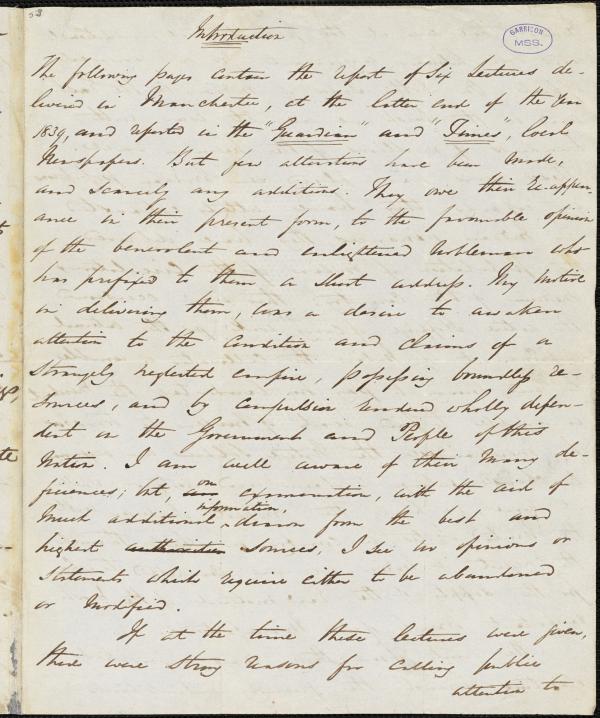 53
Introduction
GARRISON
MSS.
The following pages contain the report of Six Lectures de-
livered in Manchester, at the latter end of the Year
1839, and reported in the "Guardian" and "Times", local
Newspapers. But few alterations have been made,
and scarcely any additions. They owe their re-appear-
ance in their present form, to the favourable opinion
of the benevolent and enlightened Nobleman who
has prefixed to them a short address. My motive
in delivering them, was a desire to awaken
attention to the Condition and Claims of a
Strangely neglected empire, possessing boundless re-
sources, and by compulsion rendered wholly depen-
dent on the Government and People of this
Nation. I am well aware of their many de-
ficiences; but, on examination, with the aid of
much additional information, drawn from the best and
highest authorities sources, I see no opinions or
statements which require either to be abandoned
or modified.
If at the time these lectures were given,
there were strong reasons for calling public
attention to